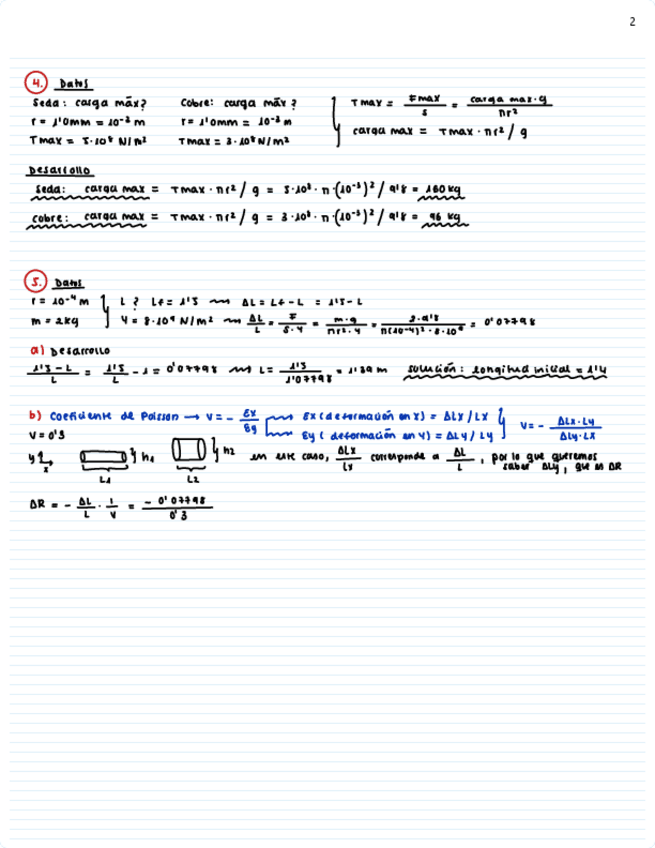 2
4. Datos
Seda: carga máx? Cobre: carga máx?
r = 1'0mm = 10⁻³ m r = 1'0mm = 10⁻³ m
Tmax = 5·10⁸ N/m² Tmax = 3·10⁸ N/m²
Tmax = Fmax/s = carga max·g/πr²
carga max = Tmax·πr²/g
Desarollo
Seda: carga max = Tmax·πr²/g = 5·10⁸·π·(10⁻³)²/9'8 = 160 kg
cobre: carga max = Tmax·πr²/g = 3·10⁸·π·(10⁻³)²/9'8 = 96 kg
5. Datos
r = 10⁻⁴ m L? Lf = 1'5 ⟿ ΔL = Lf - L = 1'5 - L
m = 2kg Y = 8·10⁹ N/m² ⟿ ΔL/L = F/S·Y = m·g/πr²·Y = 2·9'8/π(10⁻⁴)²·8·10⁹ = 0'07798
a) Desarrollo
1'5 - L/L = 1'5/L - 1 = 0'07798 ⟿ L = 1'5/1'07798 = 1'39 m solución: longitud inicial = 1'4
b) Coeficiente de Poisson → V = - Ex/Ey Ex (deformación en X) = ΔLX/LX
Ey (deformación en Y) = ΔLy/Ly V = - ΔLx·Ly/ΔLy·LX
V = 0'3
y x h1 h2 en este caso, ΔLx/Lx corresponde a ΔL/L, por lo que queremos
saber ΔLy, que es ΔR
L1 L2
ΔR = - ΔL/L · 1/V = - 0'07798/0'3